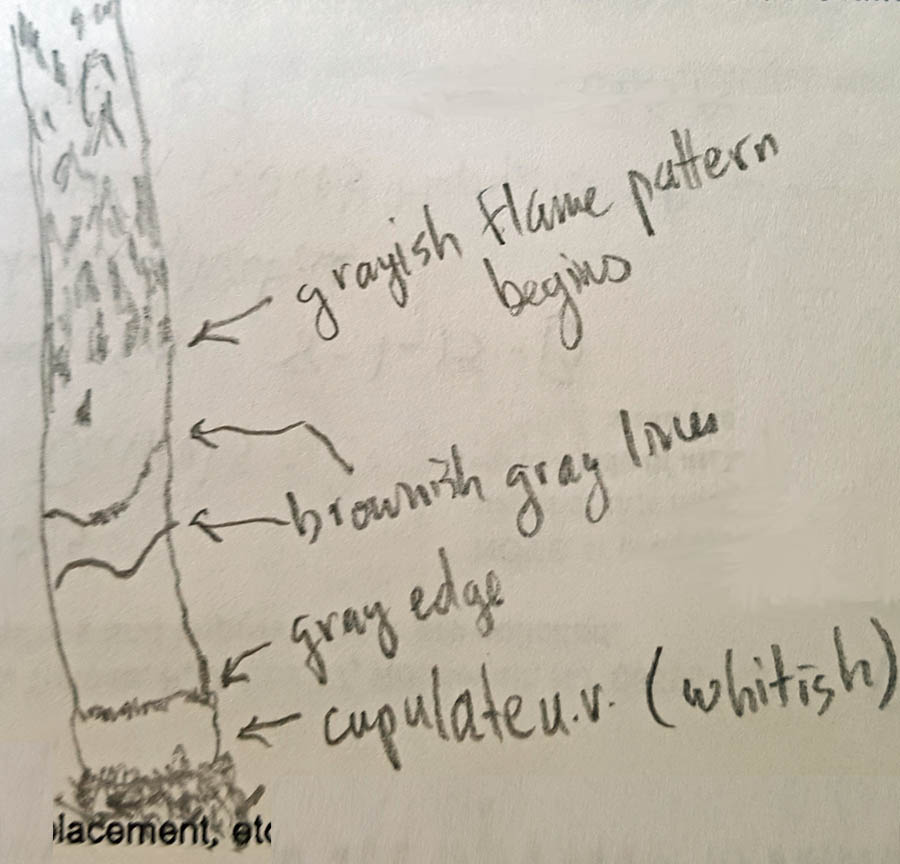 grayish flame pattern
begins
brownish gray lines
gray edge
cupulate u.v. (whitish)
placement, etc